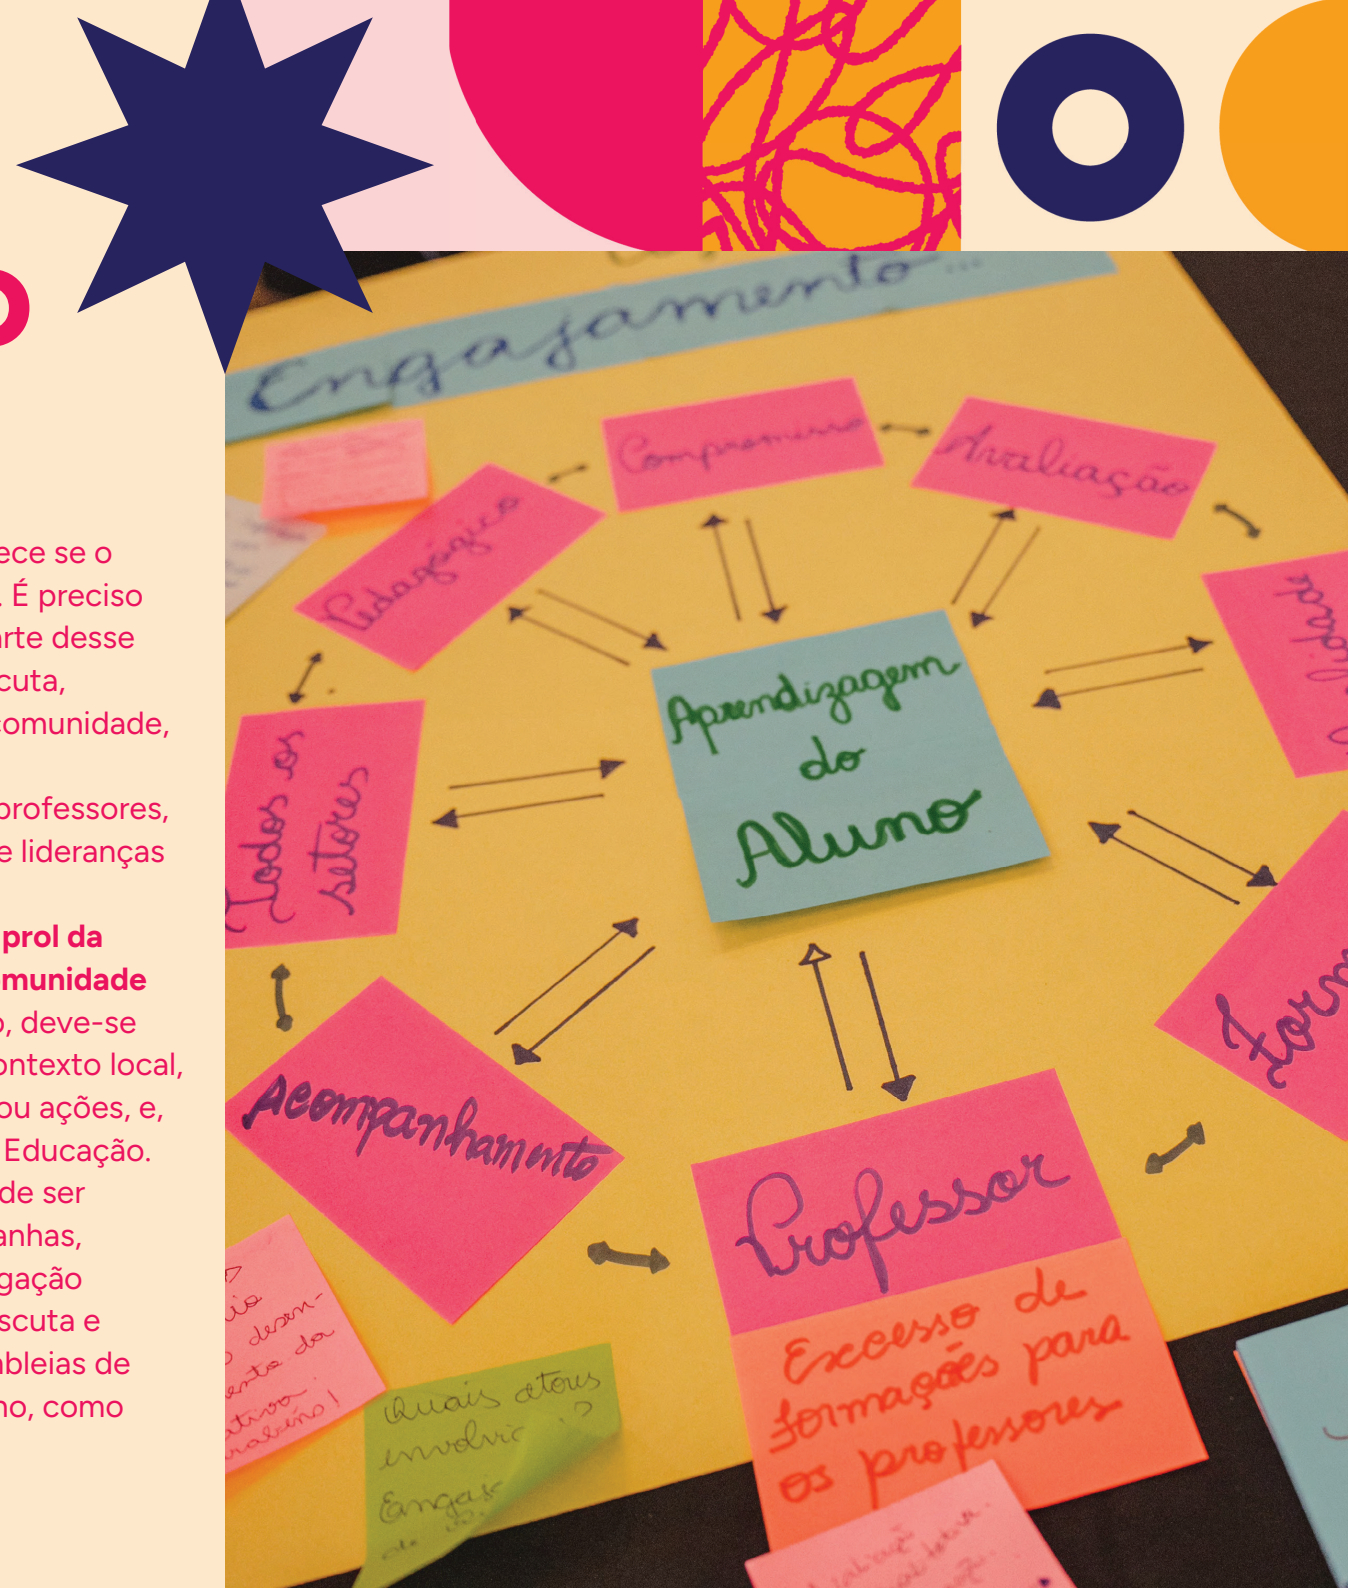 ece se o
. É preciso
arte desse
cuta,
comunidade,
professores,
e lideranças
prol da
munidade
o, deve-se
ontexto local,
ou ações, e,
Educação.
de ser
anhas,
gação
scuta e
mbleias de
no, como
Engajamento...
Compromisso
Avaliação
Pedagógico
Todos os
setores
Aprendizagem
do
Aluno
Form
Acompanhamento
Professor
Excesso de
formações para
os professores
desen-
da
Quais atores